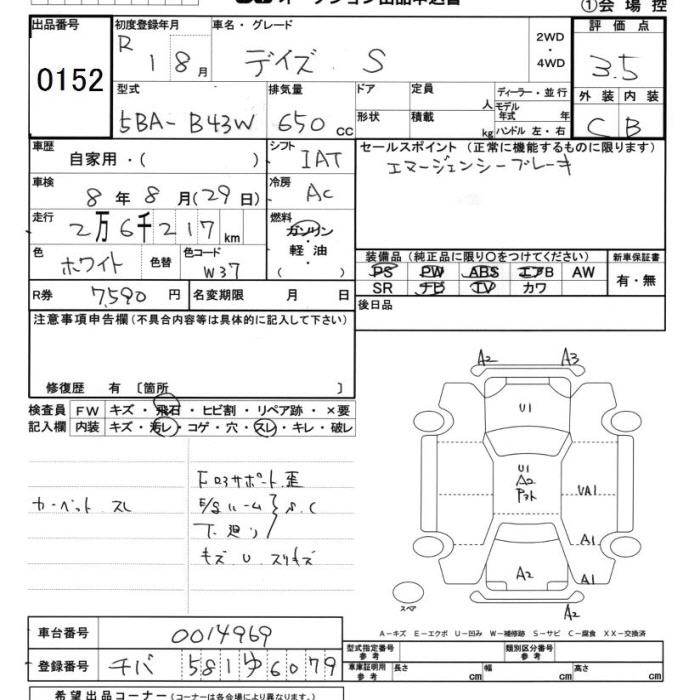 オークション出品申込書
①会場控
出品番号 初度登録年月 車名・グレード 2WD・4WD 評価点
0152 R 1 8月 デイズ S 3.5
型式 排気量 ドア 定員 人 ディーラー・並行 外装 内装
5BA-B43W 650cc 形状 積載 kg モデル年式 年 ハンドル 左・右 C B
車歴 自家用・( ) シフト IAT セールスポイント (正常に機能するものに限ります)
エマージェンシーブレーキ
車検 8年8月(29日) 冷房 AC
走行 2万6千217km 燃料 ガソリン 軽・油 ( )
色 ホワイト 色替 色コード W37
装備品 (純正品に限り○をつけてください) 新車保証書
PS PW ABS エアB AW 有・無
SR ナビ TV カワ
R券 7,590円 名変期限 月 日 後日品
注意事項申告欄(不具合内容等は具体的に記入して下さい)
修復歴 有 〔箇所 〕
検査員 FW キズ・飛石・ヒビ割・リペア跡・×要
記入欄 内装 キズ・汚レ・コゲ・穴・スレ・キレ・破レ
カーペット スレ
下廻り
キズ U スリキズ
S.C
A2 A3
U1
U1
A2
UA1
A1
A2 A1
A2
スペア
A－キズ E－エクボ U－凹み W－補修跡 S－サビ C－腐食 XX－交換済
車台番号 0014969 型式指定番号 参考 類別区分番号 参考
登録番号 チバ 581 ゆ 6079 車庫証明用 参考 長さ cm 幅 cm 高さ cm
希望出品コーナー(コーナーは各会場により異なります。)